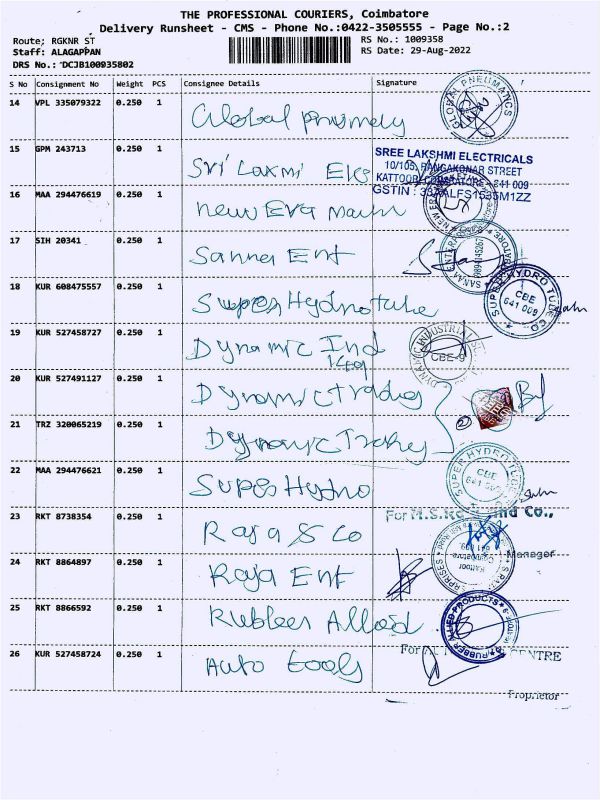 THE PROFESSIONAL COURIERS, Coimbatore
Delivery Runsheet - CMS - Phone No.:0422-3505555 - Page No.:2
Route; RGKNR ST
Staff: ALAGAPPAN
DRS No.: DCJB100935802
RS No.: 1009358
RS Date: 29-Aug-2022
S No Consignment No Weight PCS Consignee Details Signature
14 VPL 335079322 0.250 1 Global
GLOBAL PNEUMATICS
15 GPM 243713 0.250 1 Sri Laxmi Ele
SREE LAKSHMI ELECTRICALS
10/105, RANGAKONAR STREET
KATTOOR, COIMBATORE - 641 009
GSTIN :
16 MAA 294476619 0.250 1 New Era
NEW ERA
17 SIH 20341 0.250 1 Sanna Ent
18 KUR 608475557 0.250 1 Super Hydro tube
SUPER HYDRO TUBE CO
CBE
641 009
19 KUR 527458727 0.250 1 Dynamic Ind
DYNAMIC INDUSTRIAL
CBE-9
20 KUR 527491127 0.250 1 Dynamic trading
21 TRZ 320065219 0.250 1 Dynamic Trading
22 MAA 294476621 0.250 1 Super Hydro
SUPER HYDRO TUBE
CBE
641 009
23 RKT 8738354 0.250 1 Raja & Co
For M.S. and Co.,
Manager
24 RKT 8864897 0.250 1 Raja Ent
Kattoor
Coimbatore
641 009.
25 RKT 8866592 0.250 1 Rubber Allied
RUBBER ALLIED PRODUCTS
26 KUR 527458724 0.250 1 Auto tools
For CENTRE
Proprietor